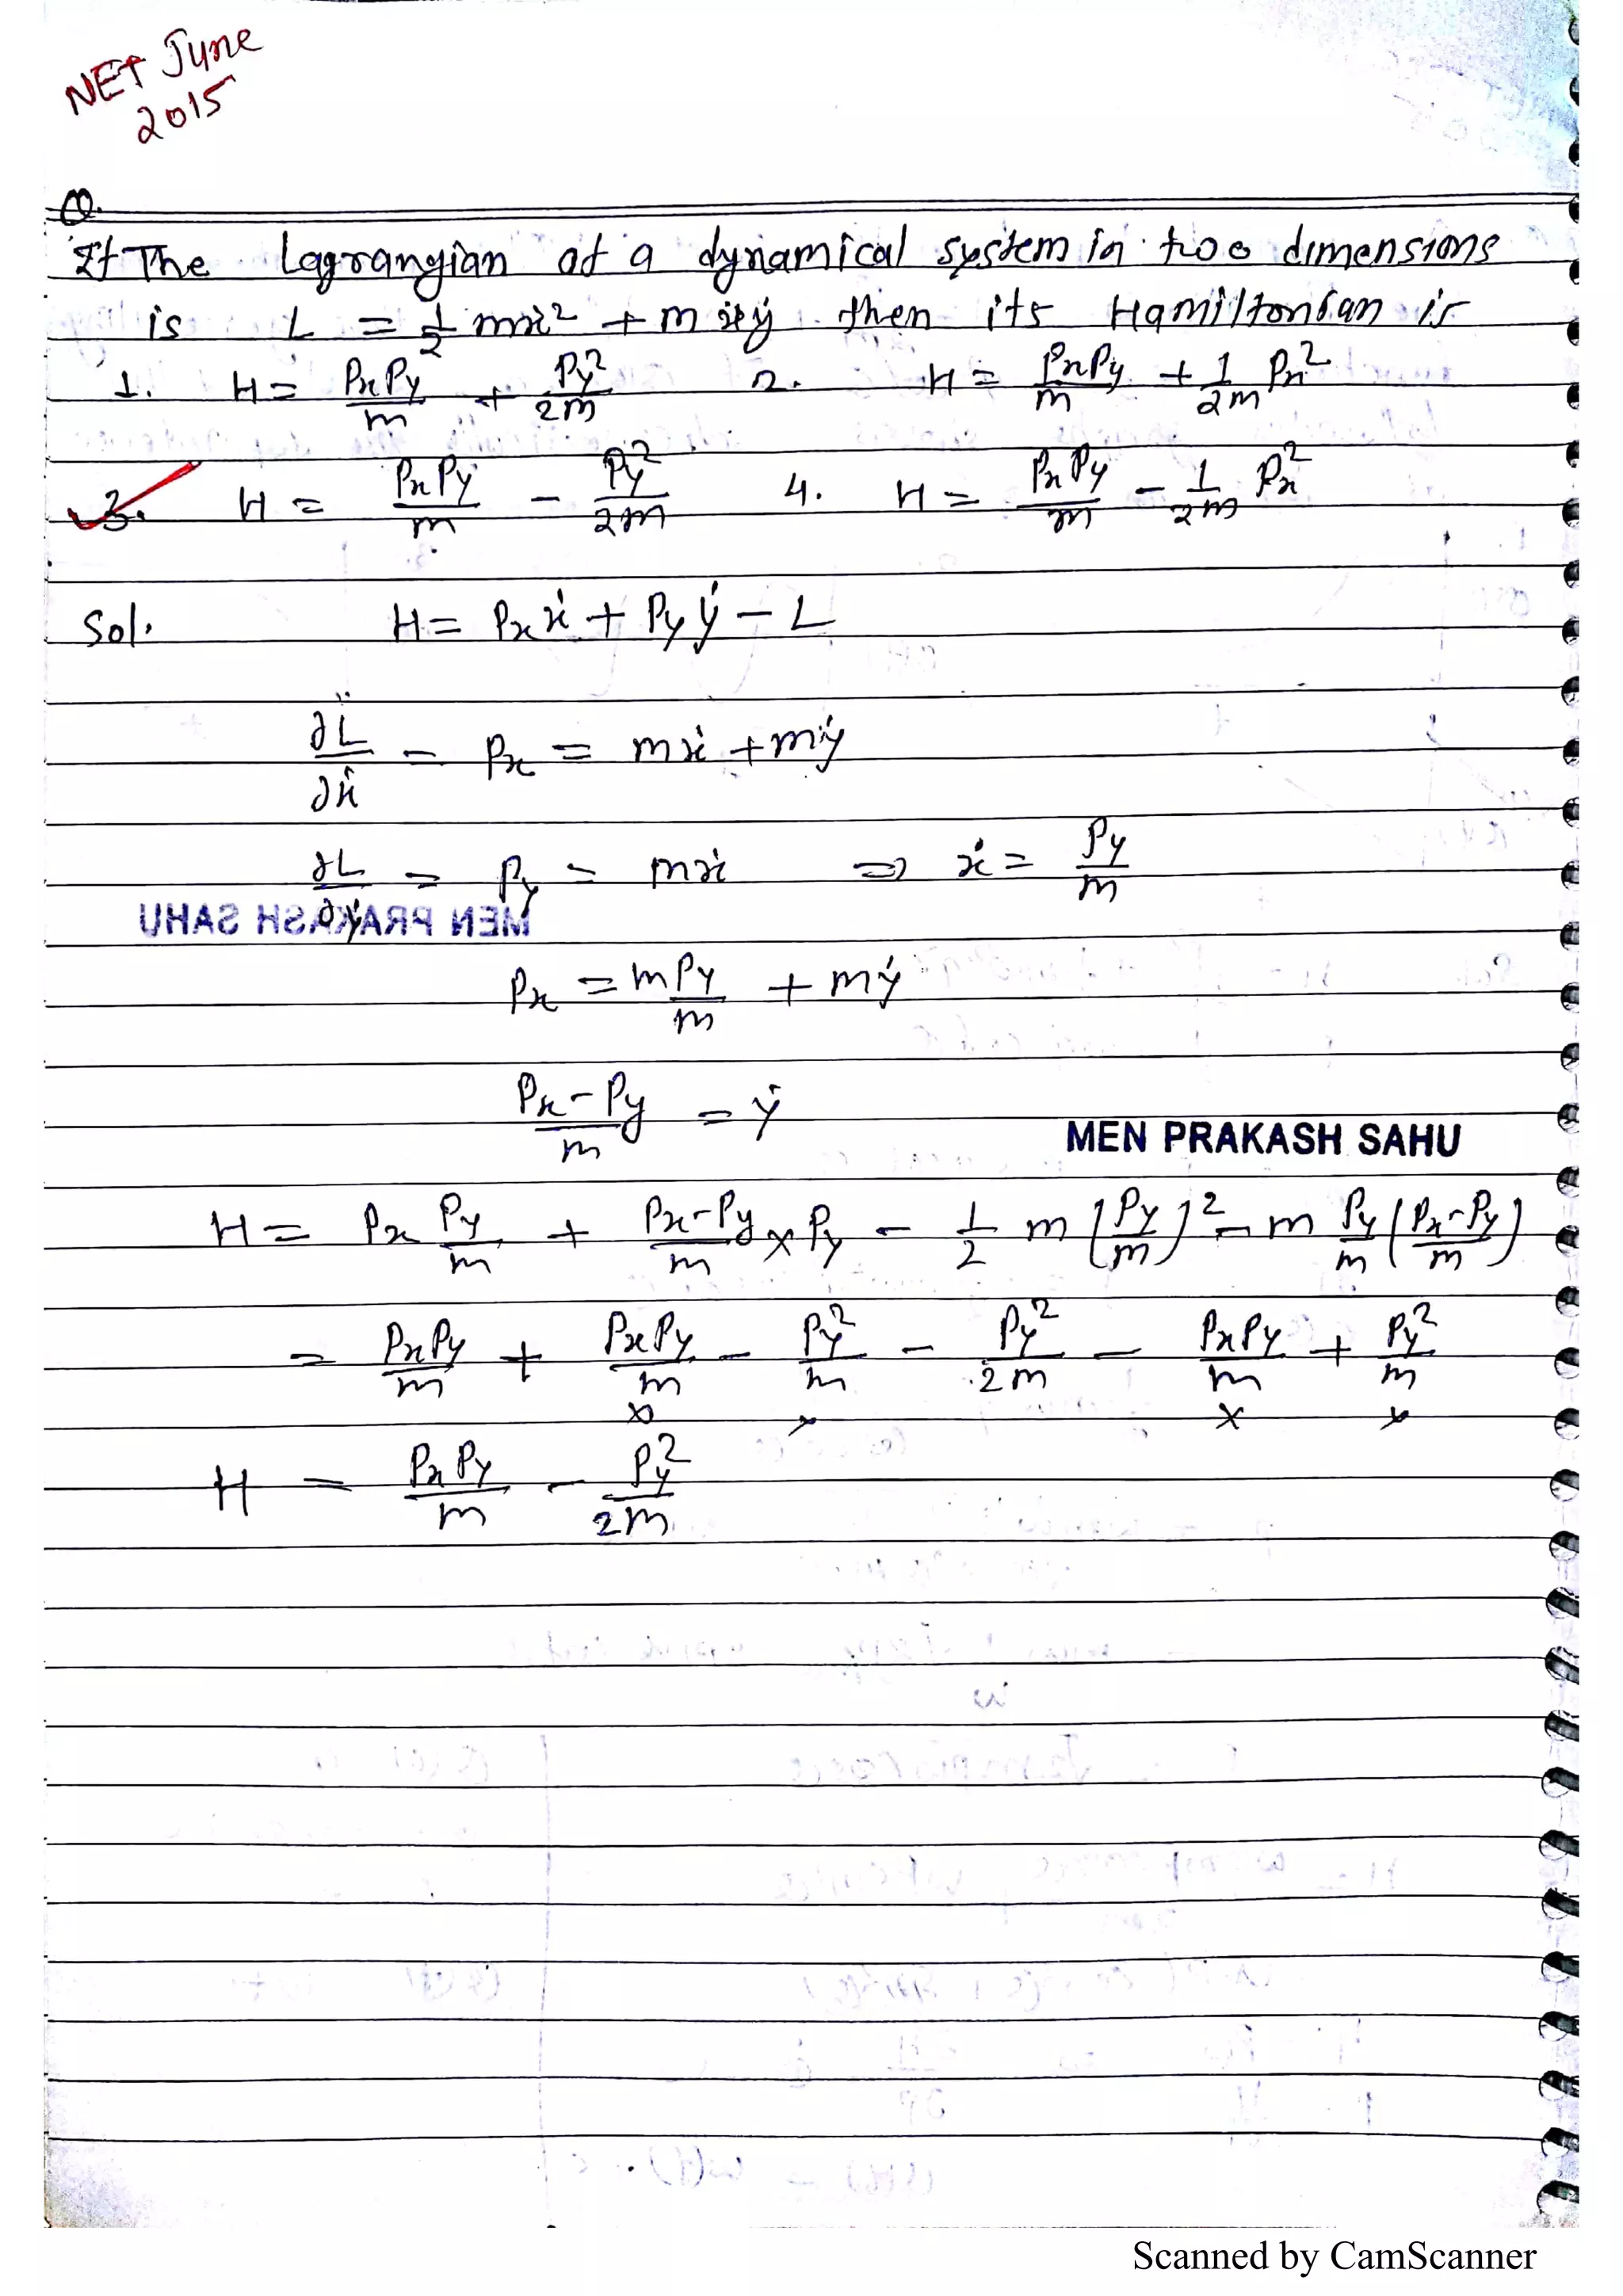 NET June
2015
Q.
If The Lagrangian of a dynamical system in two dimensions
is L = 1/2 mẋ² + m ẋẏ then its Hamiltonian is
1. H = PxPy/m + Py²/2m 2. H = PxPy/m + 1/2m Px²
3. H = PxPy/m - Py²/2m 4. H = PxPy/m - 1/2m Px²
Sol. H = Pxẋ + Pyẏ - L
∂L/∂ẋ = Px = mẋ + mẏ
∂L/∂ẏ = Py = mẋ ⇒ ẋ = Py/m
MEN PRAKASH SAHU
Px = m Py/m + mẏ
Px - Py/m = ẏ
MEN PRAKASH SAHU
H = Px Py/m + Px-Py/m × Py - 1/2 m (Py/m)² - m Py/m (Px-Py/m)
= PxPy/m + PxPy/m - Py²/m - Py²/2m - PxPy/m + Py²/m
× × × ×
H = PxPy/m - Py²/2m
Scanned by CamScanner